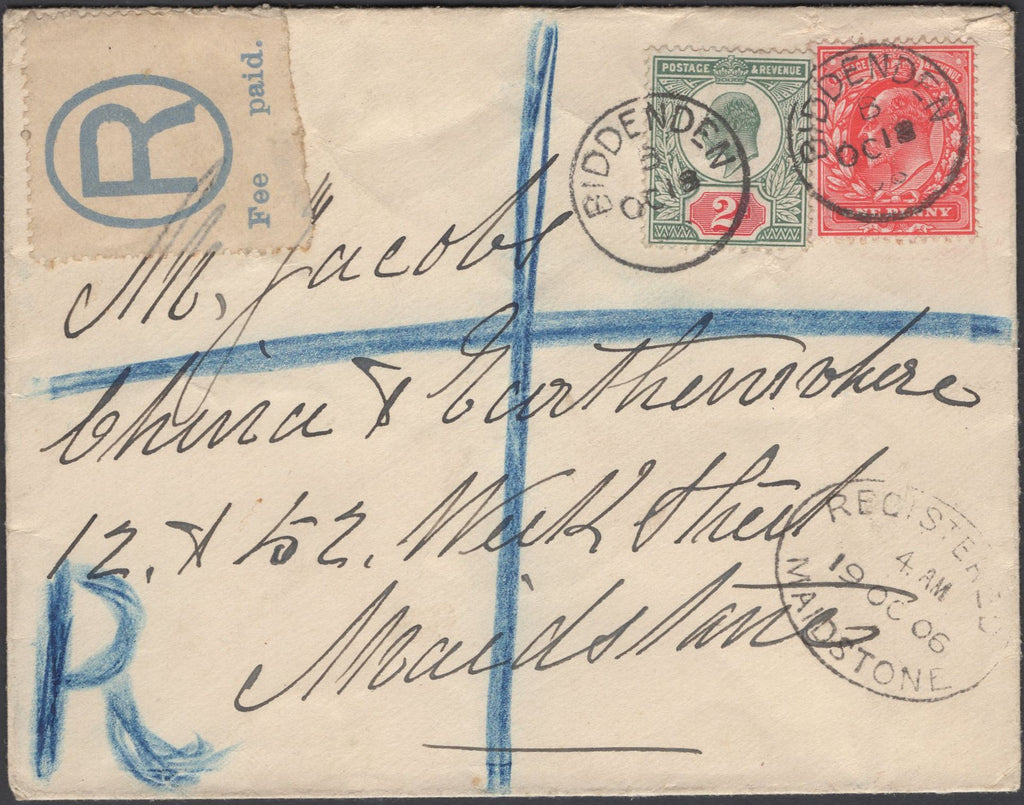 R
Fee paid.
POSTAGE & REVENUE
2
BIDDENDEN
OC 18
BIDDENDEN
B
OC 18
06
ONE PENNY
M, Jacobs
China & Earthenwhere
12. & 52. Week Street
Maidstone
REGISTERED
4. AM
19 OC 06
MAIDSTONE
R